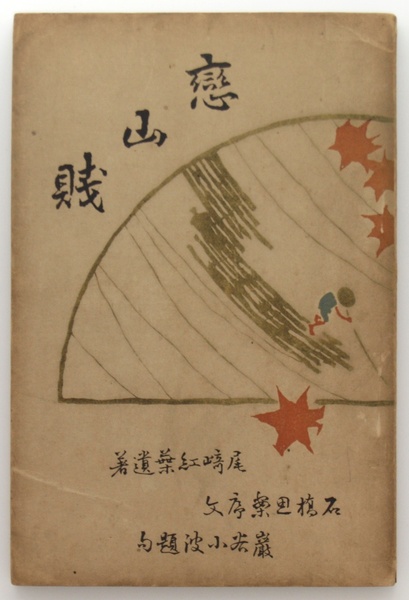 戀山賤
尾崎紅葉遺著
石橋思案序文
巖谷小波題句